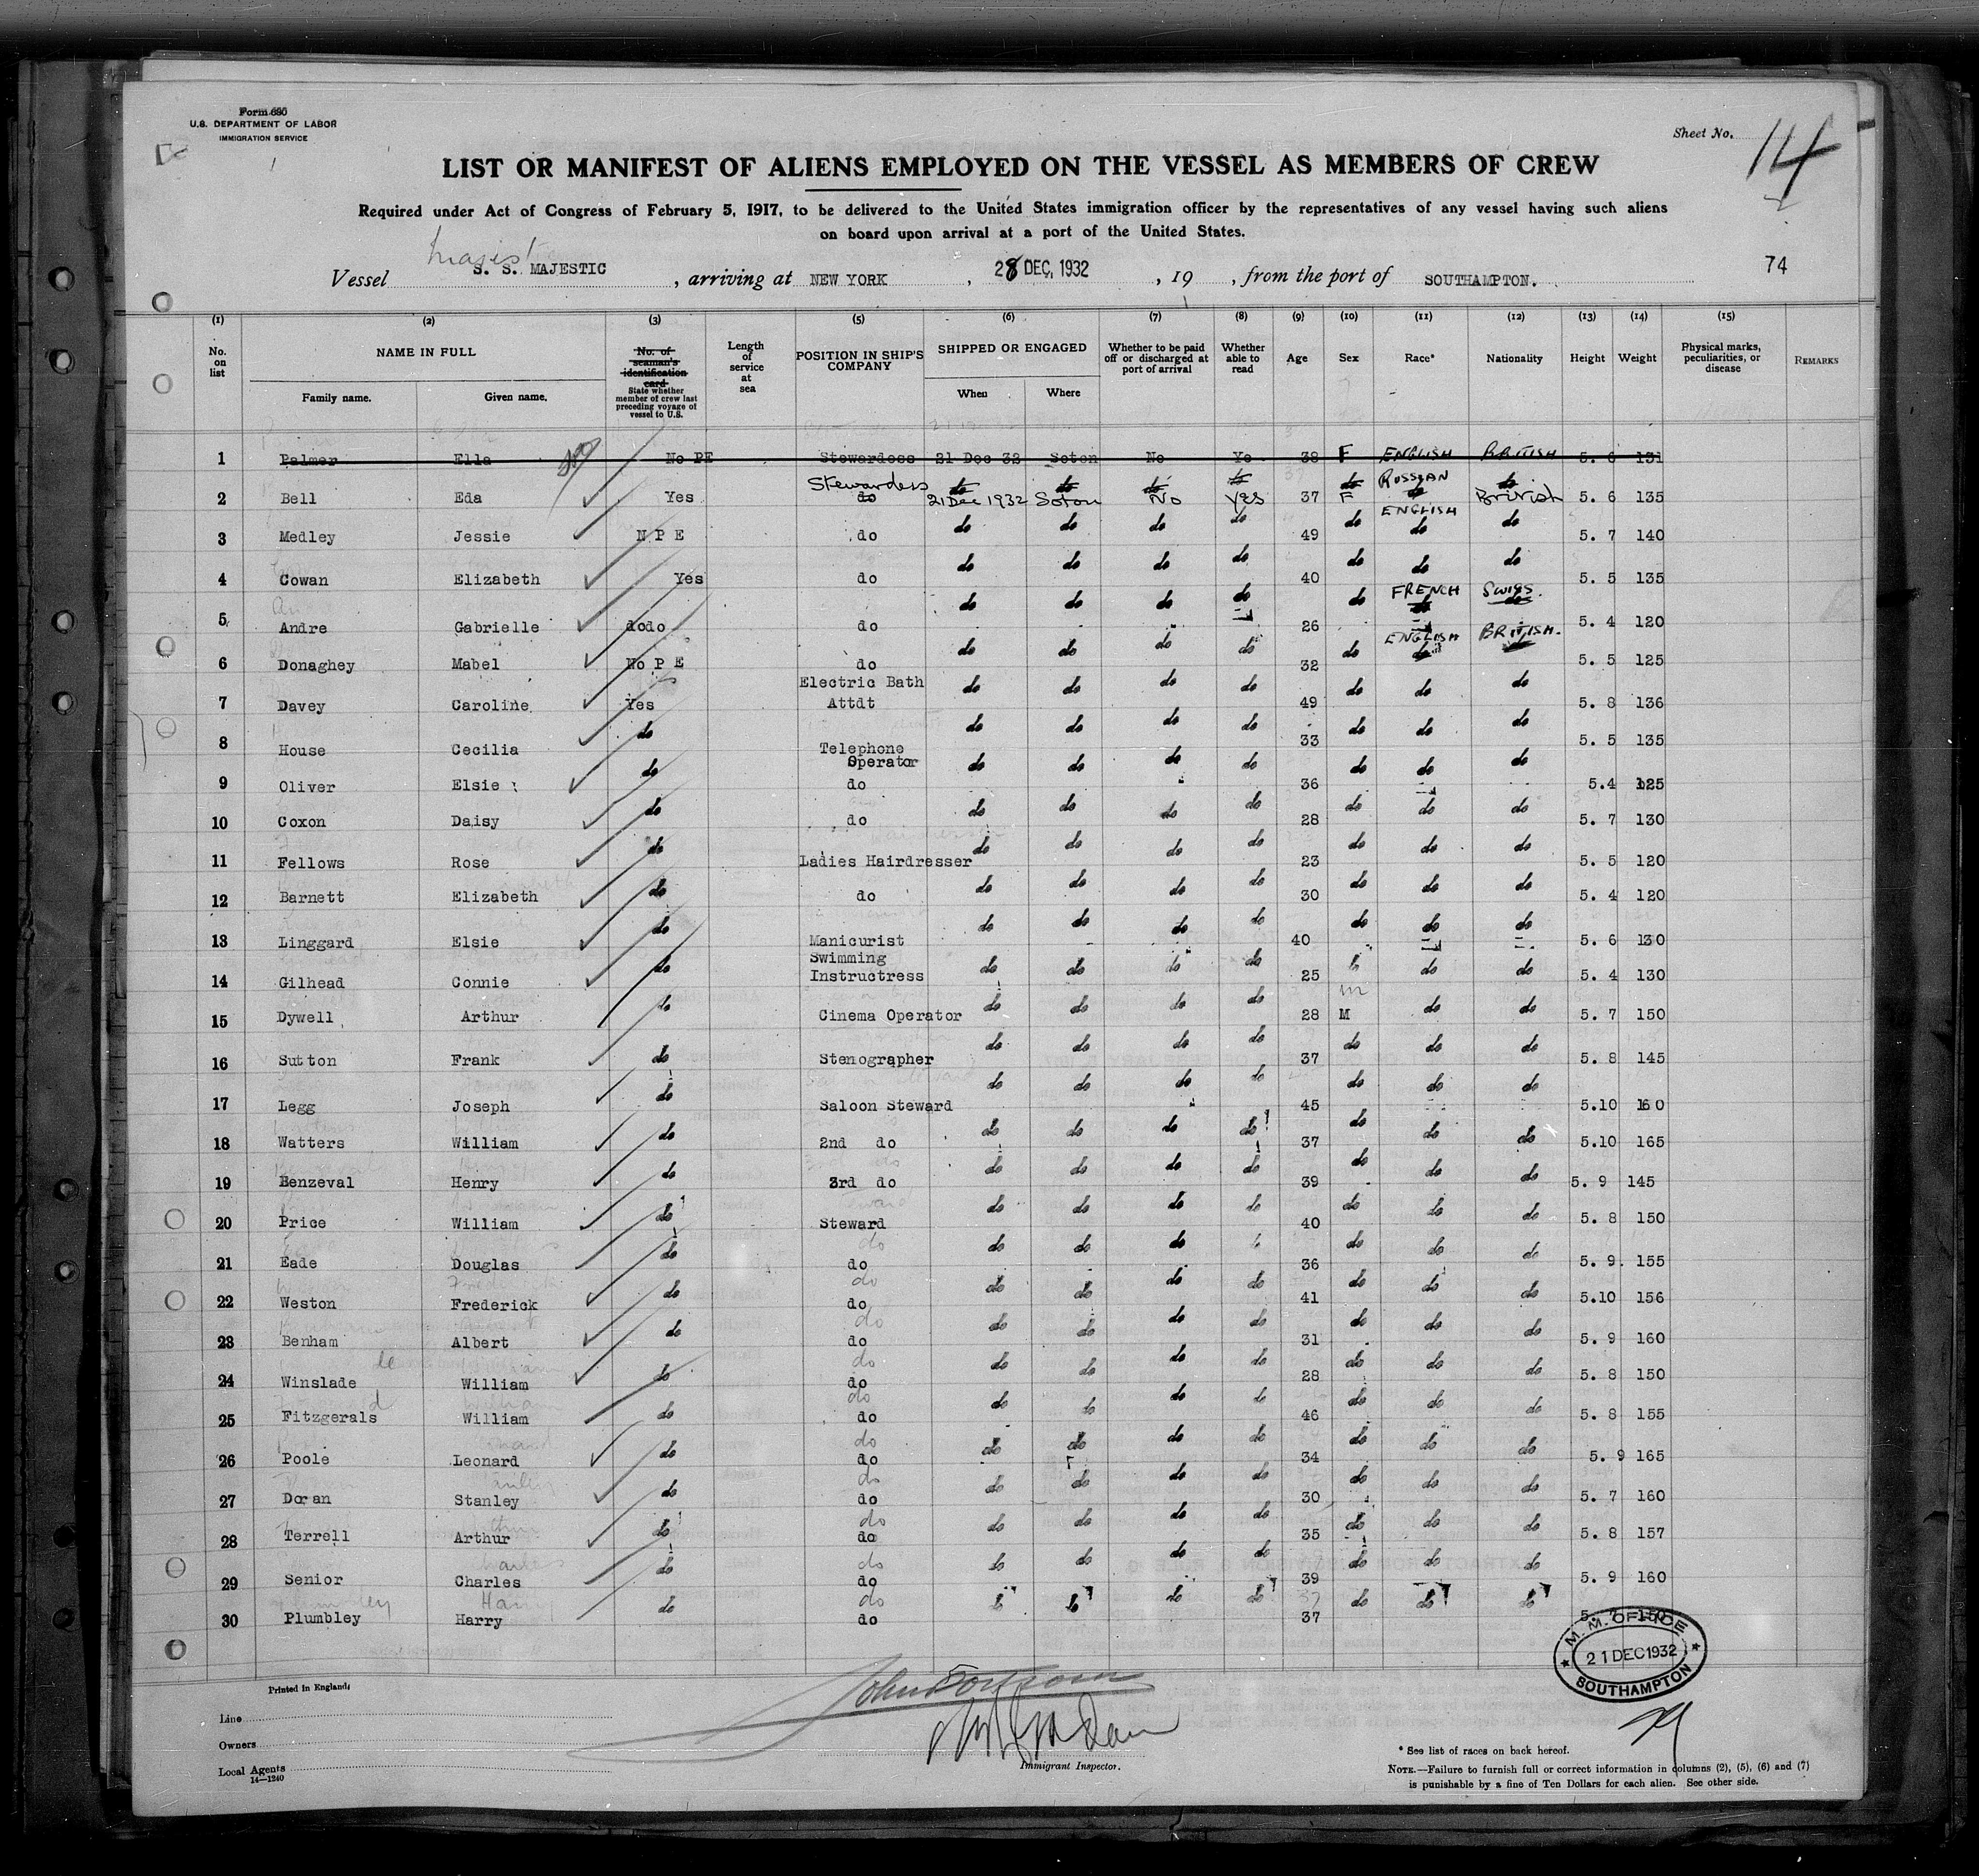 Form 690
U.S. DEPARTMENT OF LABOR
IMMIGRATION SERVICE
Sheet No. 14
LIST OR MANIFEST OF ALIENS EMPLOYED ON THE VESSEL AS MEMBERS OF CREW
Required under Act of Congress of February 5, 1917, to be delivered to the United States immigration officer by the representatives of any vessel having such aliens
on board upon arrival at a port of the United States.
Vessel S. S. MAJESTIC, arriving at NEW YORK, 28 DEC, 1932, 19 , from the port of SOUTHAMPTON. 74
(1) (2) (3) (5) (6) (7) (8) (9) (10) (11) (12) (13) (14) (15)
No. on list NAME IN FULL Family name. Given name. No. of seaman's identification card State whether member of crew last preceding voyage of vessel to U.S. Length of service at sea POSITION IN SHIP'S COMPANY SHIPPED OR ENGAGED When Where Whether to be paid off or discharged at port of arrival Whether able to read Age Sex Race* Nationality Height Weight Physical marks, peculiarities, or disease REMARKS
1 Palmer Ella No PE Stewardess 21 Dec 32 Soton No Ye 38 F ENGLISH BRITISH 5. 6 131
2 Bell Eda Yes Stewardess do 21 Dec 1932 do Soton do No do Yes 37 do F RUSSIAN do do British 5. 6 135
3 Medley Jessie N P E do do do do do 49 do ENGLISH do do 5. 7 140
4 Cowan Elizabeth Yes do do do do do 40 do do do 5. 5 135
5 Andre Gabrielle dodo do do do do do 26 do FRENCH do SWISS. do 5. 4 120
6 Donaghey Mabel No P E do do do do do 32 do ENGLISH do BRITISH. 5. 5 125
7 Davey Caroline Yes Electric Bath Attdt do do do do 49 do do do 5. 8 136
8 House Cecilia do Telephone Operator do do do do 33 do do do 5. 5 135
9 Oliver Elsie do do do do do do 36 do do do 5.4 125
10 Coxon Daisy do do do do do do 28 do do do 5. 7 130
11 Fellows Rose do Ladies Hairdresser do do do do 23 do do do 5. 5 120
12 Barnett Elizabeth do do do do do do 30 do do do 5. 4 120
13 Linggard Elsie do Manicurist do do do do 40 do do do 5. 6 130
14 Gilhead Connie do Swimming Instructress do do do do 25 do do 5. 4 130
15 Dywell Arthur do Cinema Operator do do do do 28 M do do 5. 7 150
16 Sutton Frank do Stenographer do do do do 37 do do do 5. 8 145
17 Legg Joseph do Saloon Steward do do do do 45 do do do 5.10 160
18 Watters William do 2nd do do do do do 37 do do do 5.10 165
19 Benzeval Henry do 3rd do do do do do 39 do do do 5. 9 145
20 Price William do Steward do do do do 40 do do do 5. 8 150
21 Eade Douglas do do do do do 36 do do do 5. 9. 155
22 Weston Frederick do do do do do do 41 do do do 5.10 156
23 Benham Albert do do do do do do 31 do do do 5. 9 160
24 Winslade William do do do do do do 28 do do do 5. 8 150
25 Fitzgerals William do do do do do do 46 do do do 5. 8 155
26 Poole Leonard do do do do do do 34 do do do 5. 9 165
27 Doran Stanley do do do do do do 30 do do do 5. 7 160
28 Terrell Arthur do do do do do do 35 do do do 5. 8 157
29 Senior Charles do do do do do do 39 do do do 5. 9 160
30 Plumbley Harry do do do do do do 37 do do do 5. 7 150
M. M. OFFICE
21 DEC 1932
SOUTHAMPTON
Printed in England
Line
Owners
Local Agents
14—1240
Immigrant Inspector.
* See list of races on back hereof.
NOTE.—Failure to furnish full or correct information in columns (2), (5), (6) and (7)
is punishable by a fine of Ten Dollars for each alien. See other side.